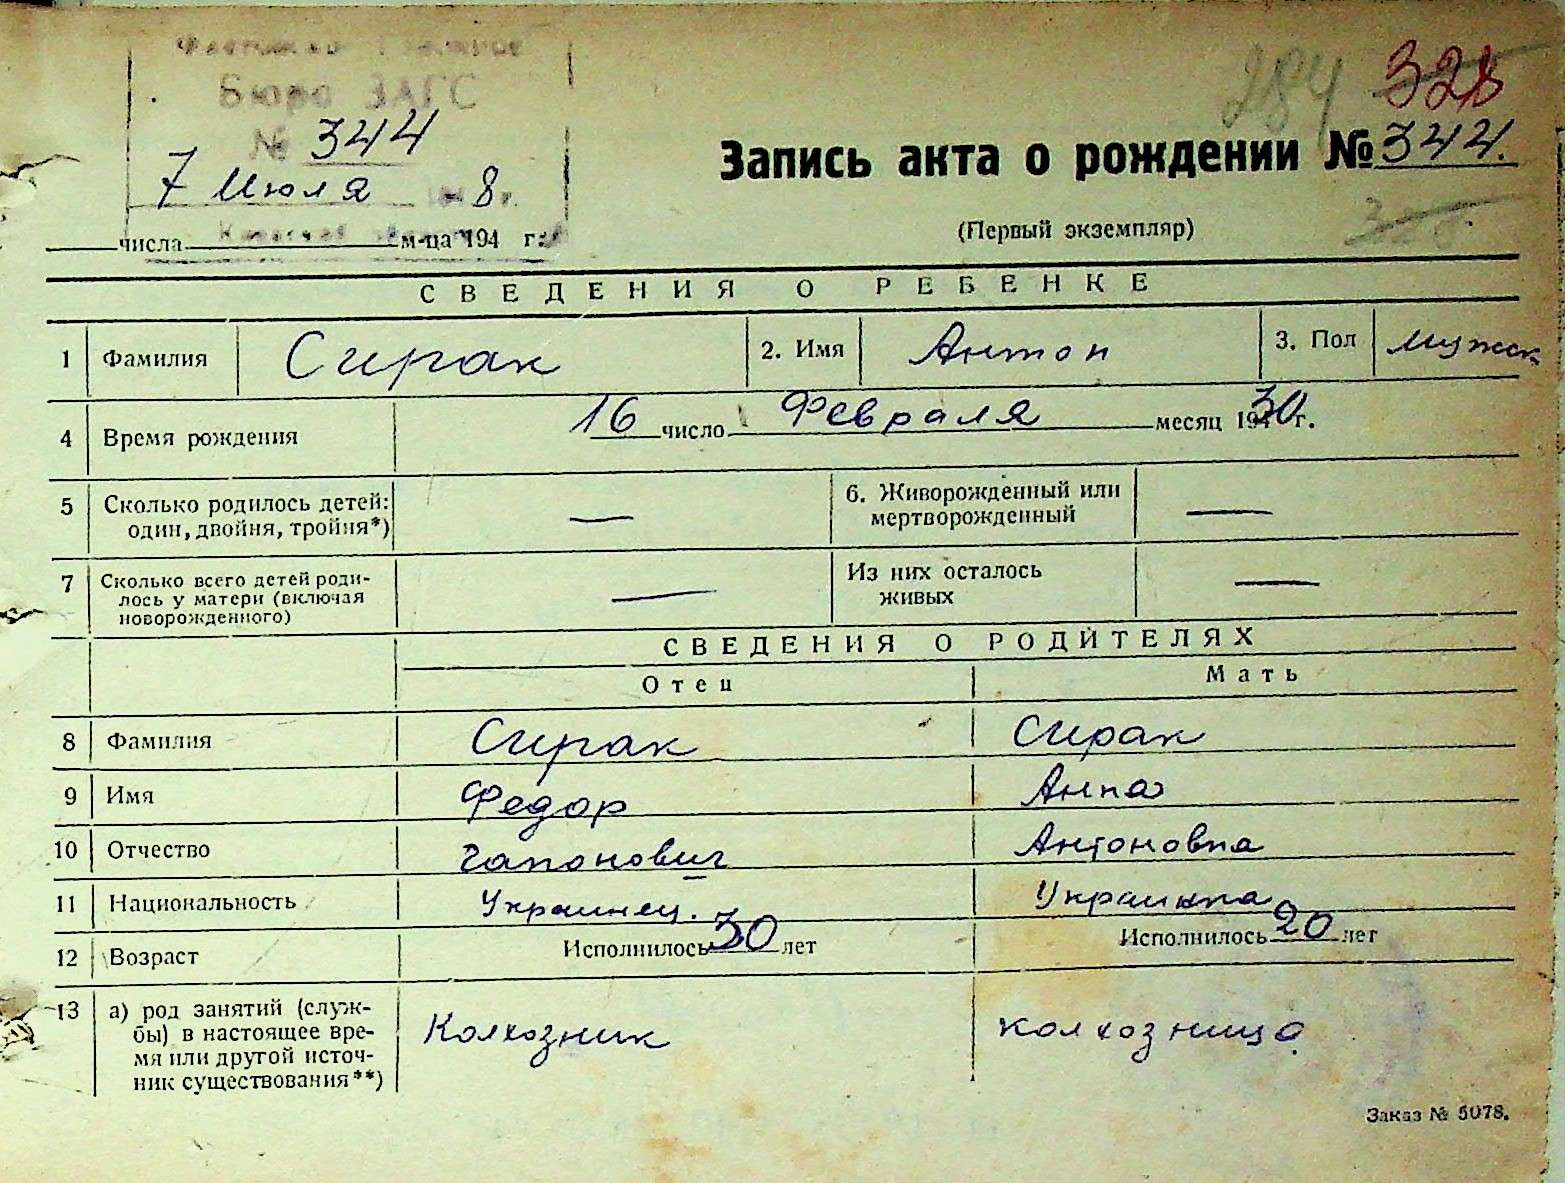 Бюро ЗАГС
№ 344
7 Июля 8 г.
числа м-ца 194 г.
284 328
Запись акта о рождении № 344.
(Первый экземпляр)
СВЕДЕНИЯ О РЕБЕНКЕ
1 Фамилия Сирак 2. Имя Антон 3. Пол мужск
4 Время рождения 16 число Февраля месяц 1930 г.
5 Сколько родилось детей: один, двойня, тройня*) — 6. Живорожденный или мертворожденный —
7 Сколько всего детей роди-
лось у матери (включая
новорожденного) — Из них осталось живых —
СВЕДЕНИЯ О РОДИТЕЛЯХ
Отец Мать
8 Фамилия Сирак Сирак
9 Имя Федор Анна
10 Отчество Гапонович Антоновна
11 Национальность Украинец. Украинка
12 Возраст Исполнилось 30 лет Исполнилось 20 лет
13 а) род занятий (служ-
бы) в настоящее вре-
мя или другой источ-
ник существования**) Колхозник колхозница
Заказ № 5078.